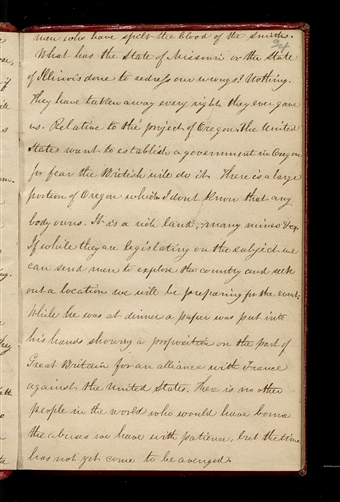 men who have spilt the blood of the Smiths.
24
What has the State of Missouri or the State
of Illinois done to redress our wrongs? Nothing.
They have taken away every right they ever gave
us. Relative to the project of Oregon, the United
States want to establish a government in Oregon
for fear the British will do it. There is a large
portion of Oregon which I dont know that any
body owns. It is a rich land, many mines &c.
If while they are legislating on the subject we
can send men to explore the country and seek
out a location we will be preparing for the work.
While he was at dinner a paper was put into
his hands showing a proposition on the part of
Great Britain for an alliance with France
against the United States. There is no other
people in the world who would have borne
the abuses we have with patience, but the time
has not yet come to be avenged.